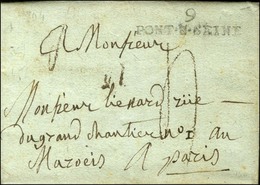 9
PONT-S-SEINE
A Monsieur
Monsieur lienard rüe
du grand chantier n° 1 au
Maraeis A paris